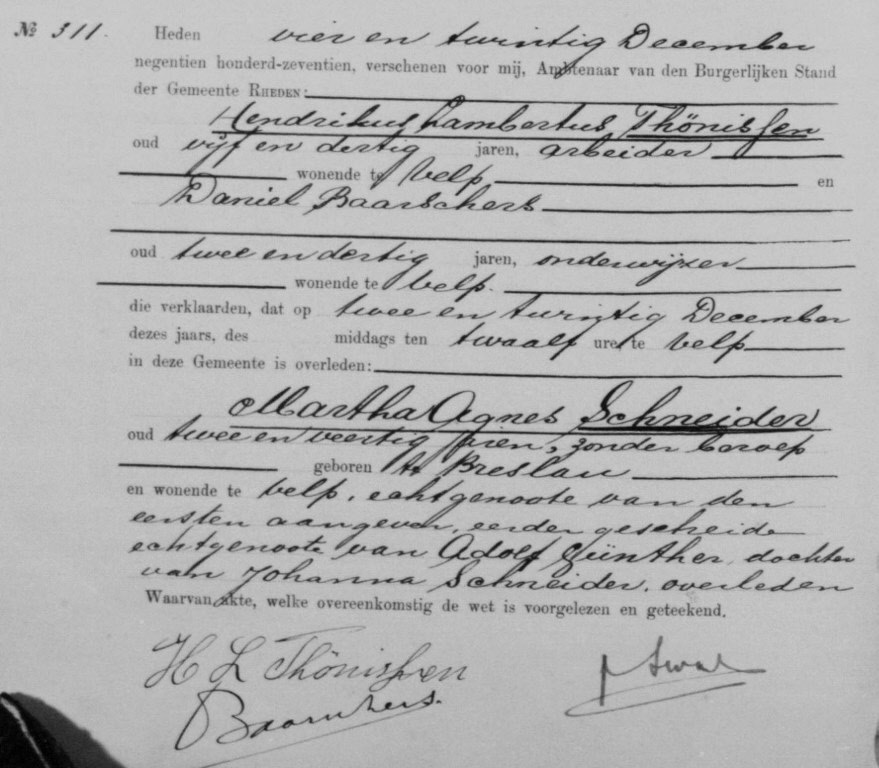 № 311. Heden vier en twintig December
negentien honderd-zeventien, verschenen voor mij, Ambtenaar van den Burgerlijken Stand
der Gemeente RHEDEN:
Hendrikus Lambertus Thönissen
oud vijf en dertig jaren, arbeider
wonende te Velp en
Daniel Baarschers
oud twee en dertig jaren, onderwijzer
wonende te Velp.
die verklaarden, dat op twee en twintig December
dezes jaars, des middags ten twaalf ure, te Velp
in deze Gemeente is overleden:
Martha Agnes Schneider
oud twee en veertig jaren, zonder beroep
geboren te Breslau
en wonende te Velp, echtgenoote van den
eersten aangever, eerder gescheiden
echtgenoote van Adolf Günther, dochter
van Johanna Schneider, overleden
Waarvan akte, welke overeenkomstig de wet is voorgelezen en geteekend.
H L Thönissen
Baarschers.